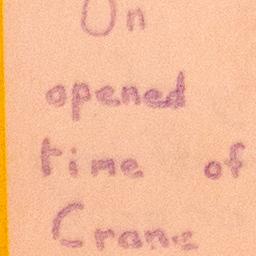 On
opened
time of
Crane